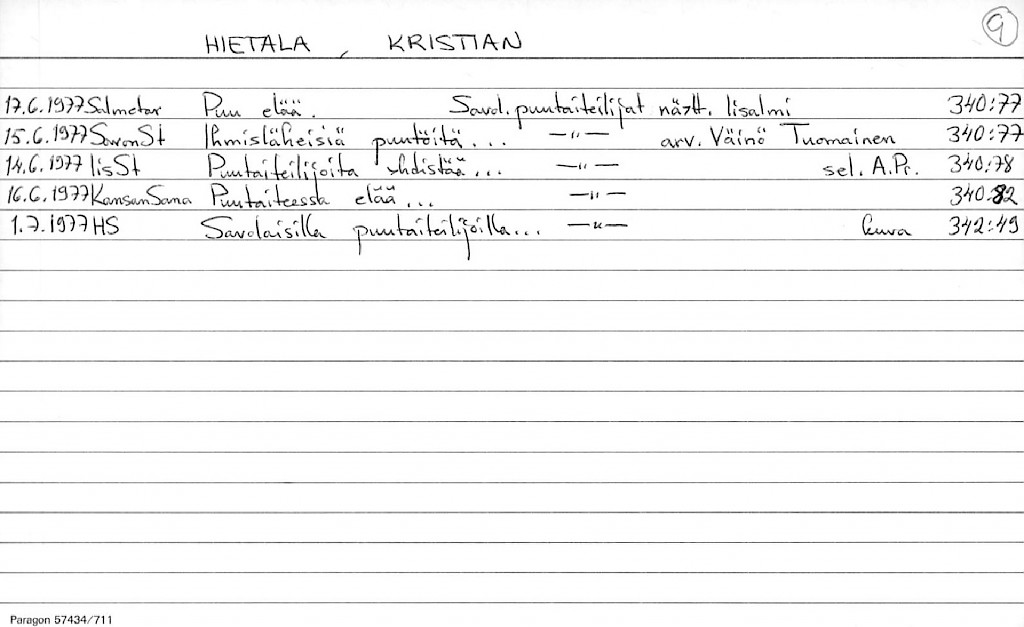 9
HIETALA, KRISTIAN
17.6.1977 Salmetar Puu elää. Savol. puutaiteilijat näytt. Iisalmi 340:77
15.6.1977 SavonSt Ihmisläheisiä puutöitä... —"— arv. Väinö Tuomainen 340:77
14.6.1977 IisSt Puutaiteilijoita yhdistää... —"— sel. A.Pr. 340:78
16.6.1977 KansanSana Puutaiteessa elää... —"— 340:82
1.7.1977 HS Savolaisilla puutaiteilijoilla... —"— kuva 342:49
Paragon 57434/711